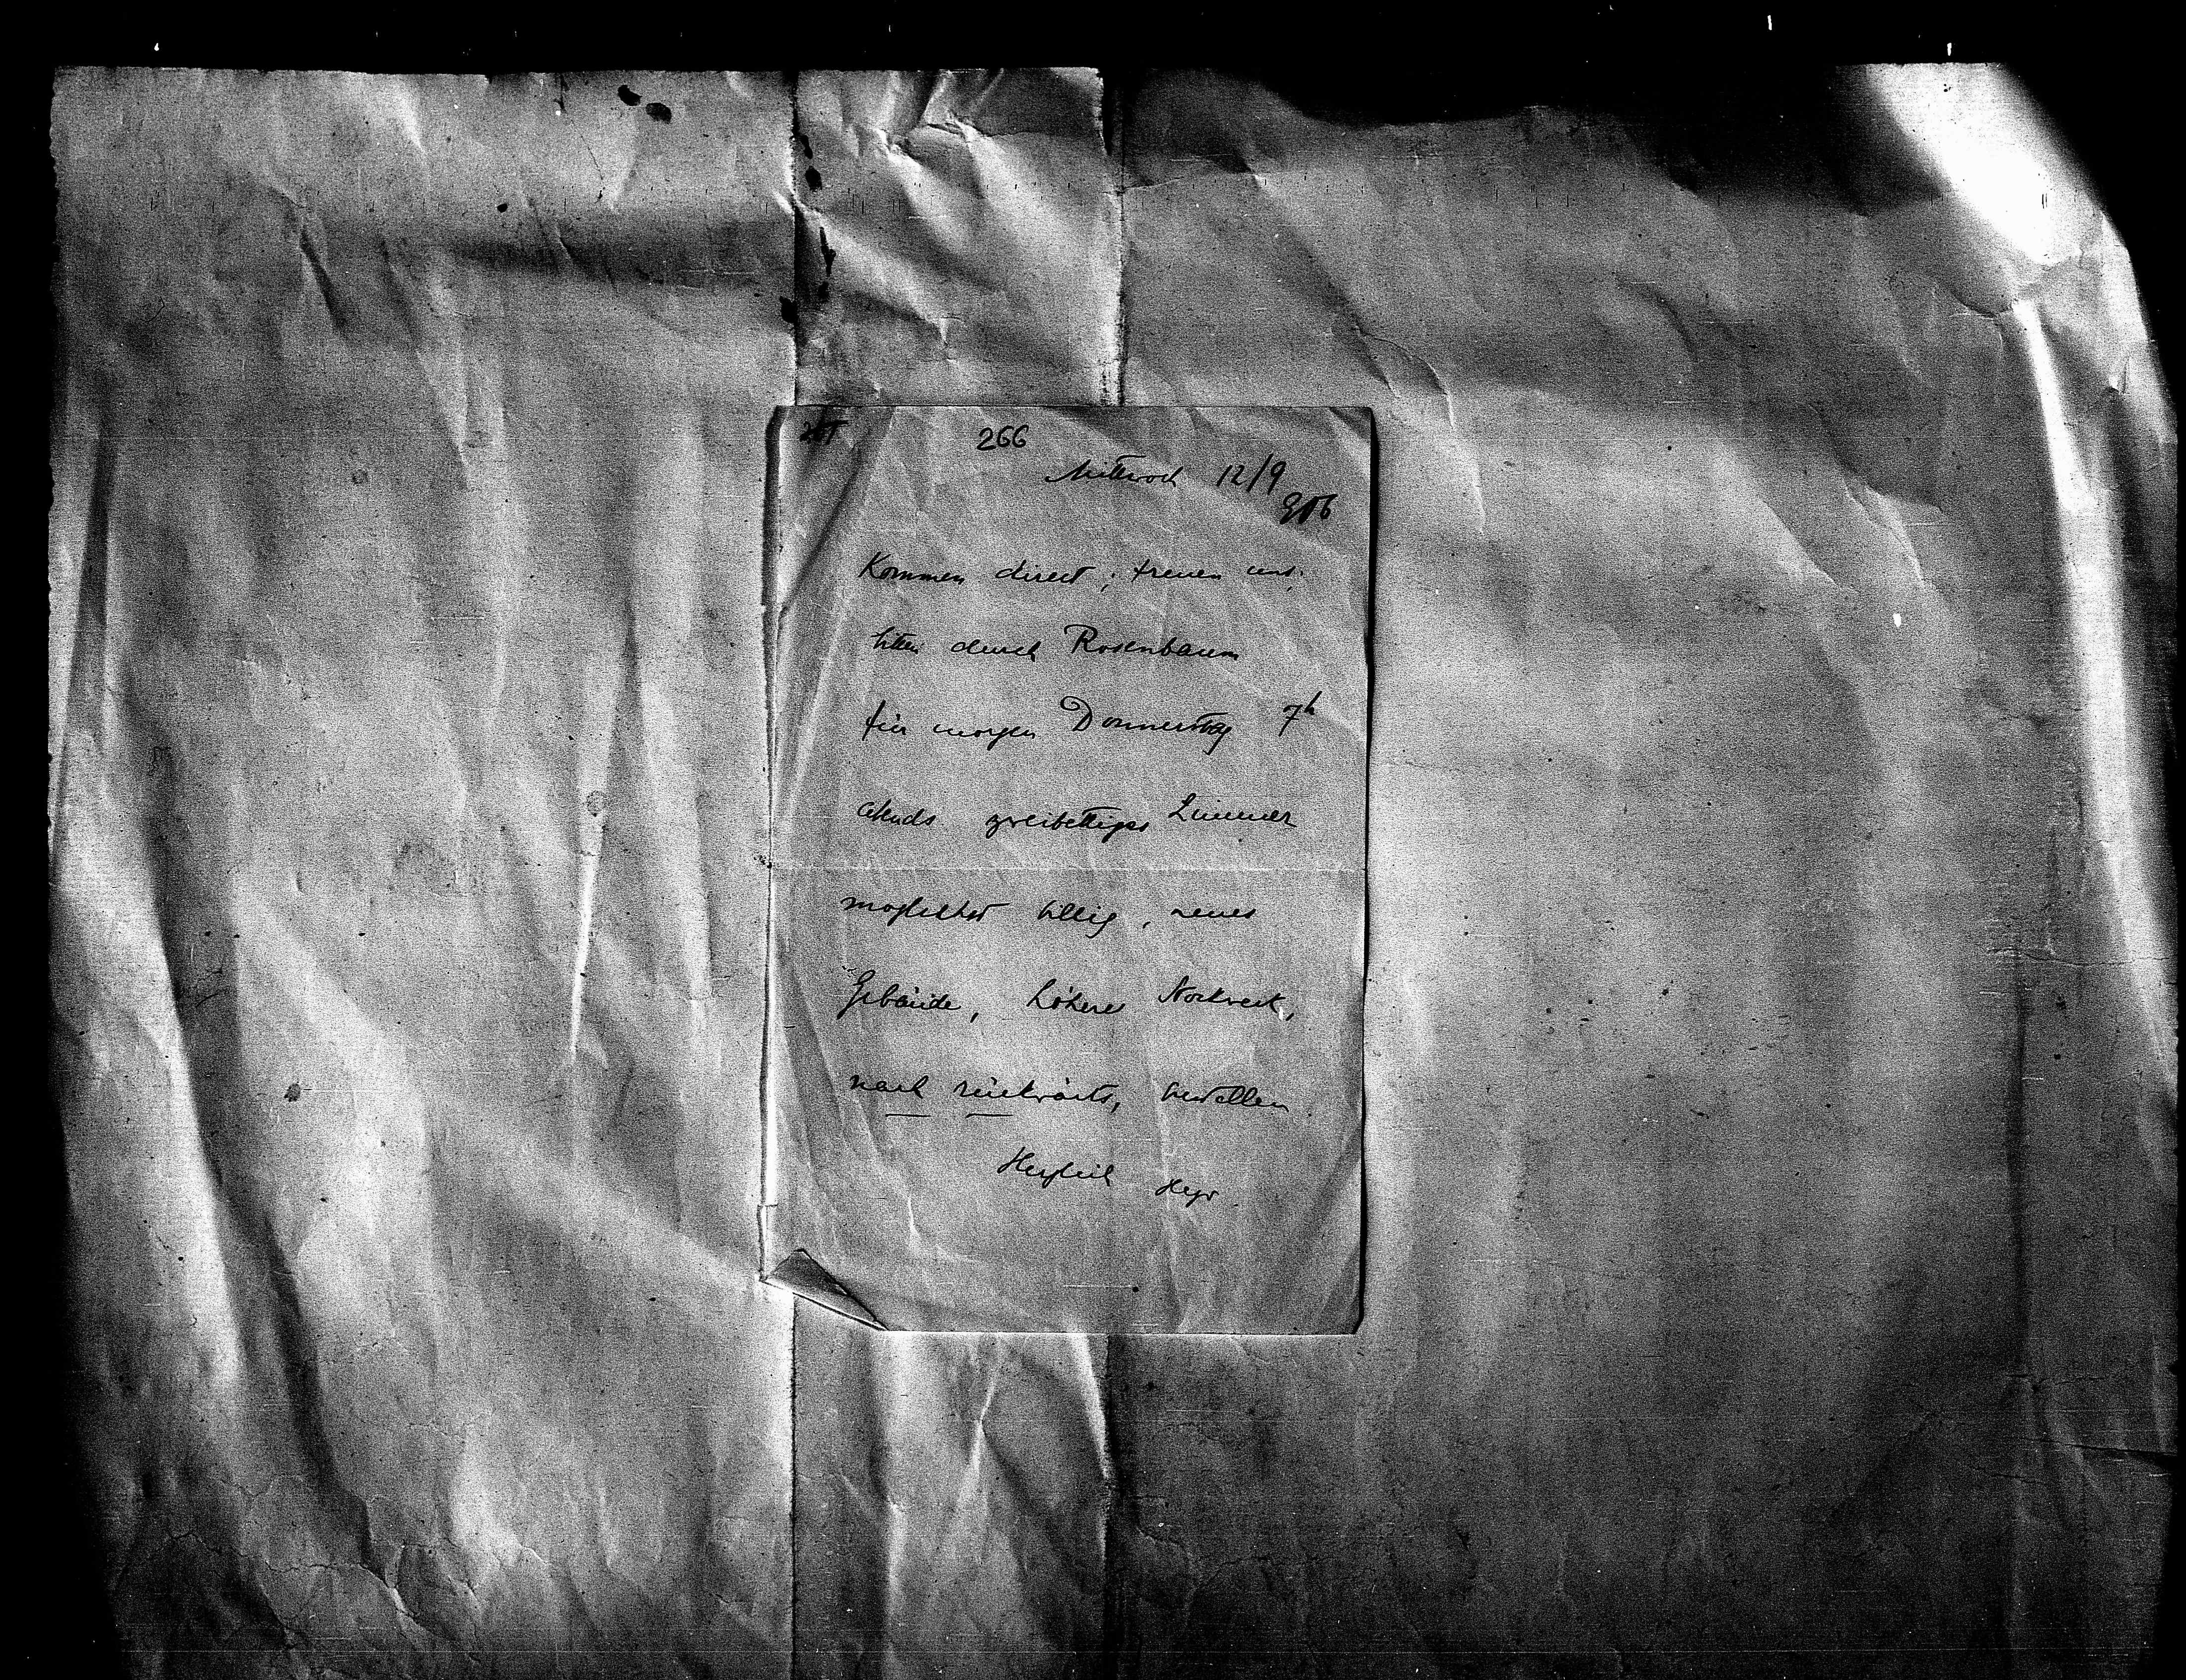 266
Mittwoch 12/9
906
Kommen direct; freuen uns.
bitten durch Rosenbaum
für morgen Donnerstag 7h
abends zweibettiges Zimmer
möglichst billig, neues
Gebäude, höheres Stockwerk,
nach rückwärts, bestellen
Herzlich